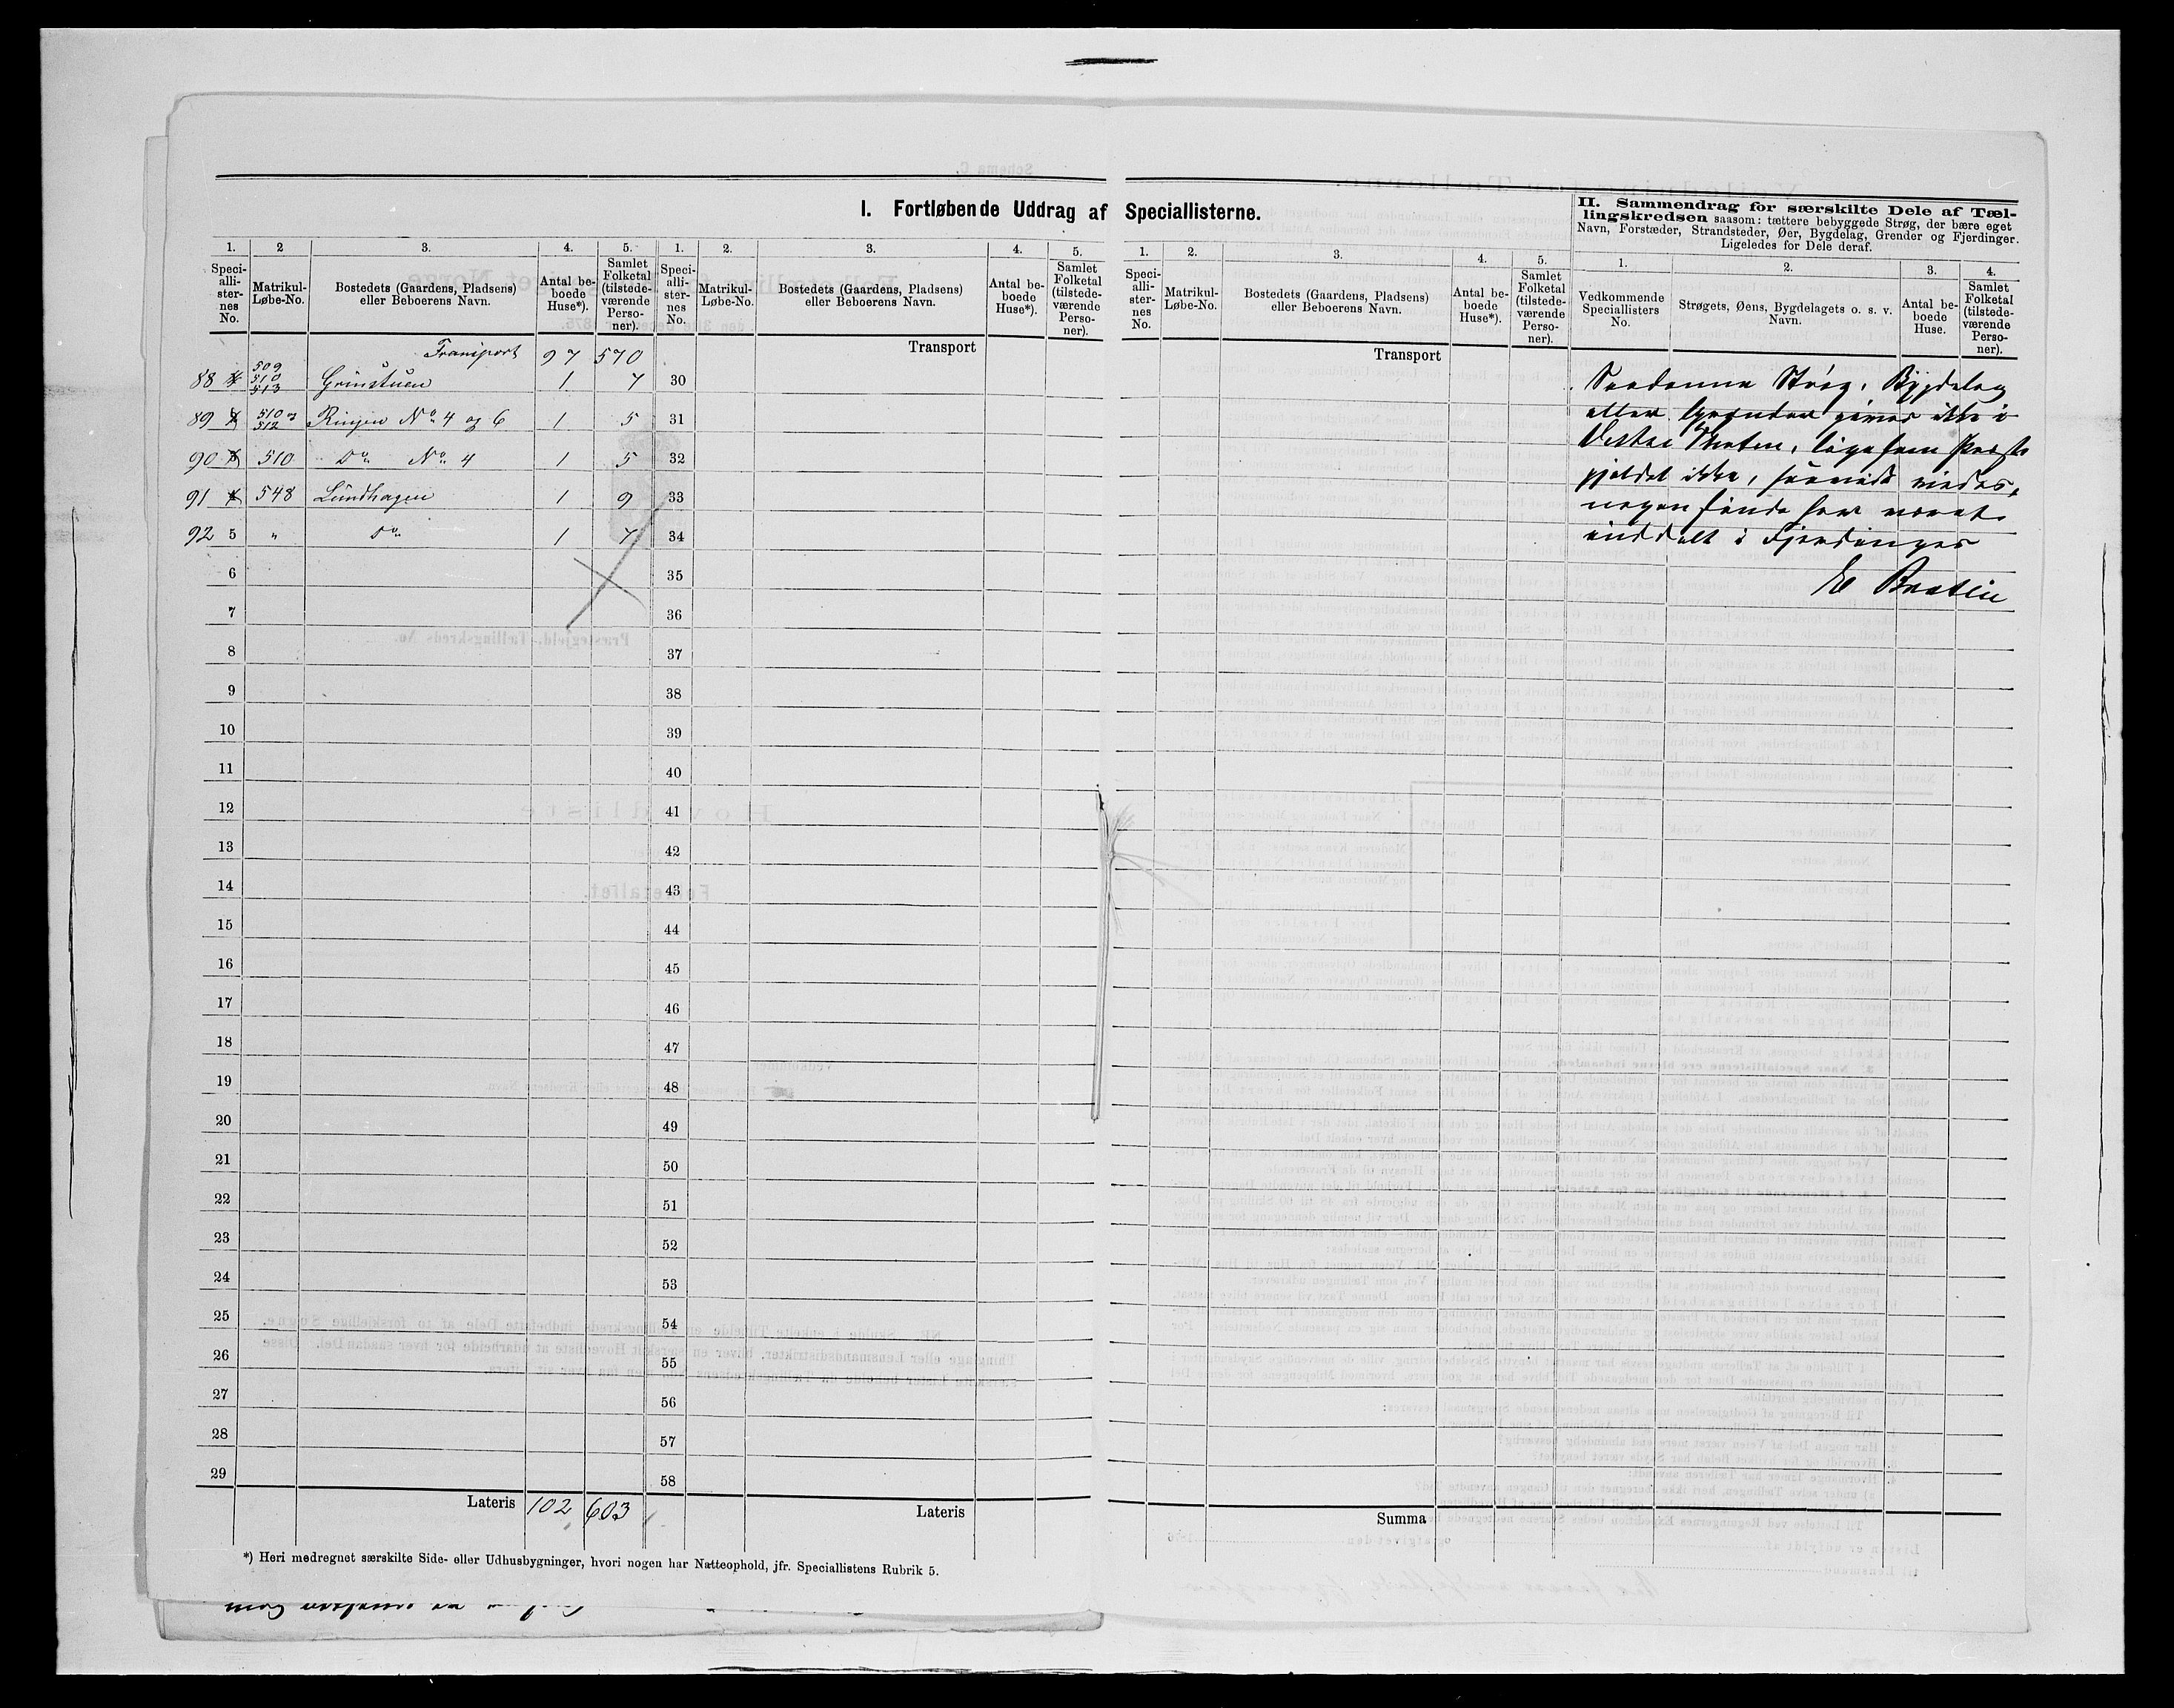 I. Fortløbende Uddrag af Speciallisterne.
1. 2 3. 4. 5.
Speci-alli-ster-nes No. Matrikul-Løbe-No. Bostedets (Gaardens, Pladsens) eller Beboerens Navn. Antal be-boede Huse*). Samlet Folketal (tilstede-værende Perso-ner).
Transport 97 570
88 509 510 513 Grinstuen 1 7
89 510 og 512 Ringen No 4 og 6 1 5
90 510 Do No 4 1 5
91 548 Lundhagen 1 9
92 5 " Do 1 7
6
7
8
9
10
11
12
13
14
15
16
17
18
19
20
21
22
23
24
25
26
27
28
29
Lateris 102 603
1. 2. 3. 4. 5.
Speci-alli-ster-nes No. Matrikul-Løbe-No. Bostedets (Gaardens, Pladsens) eller Beboerens Navn. Antal be-boede Huse*). Samlet Folketal (tilstede-værende Perso-ner).
Transport
30
31
32
33
34
35
36
37
38
39
40
41
42
43
44
45
46
47
48
49
50
51
52
53
54
55
56
57
58
Lateris
*) Heri medregnet særskilte Side- eller Udhusbygninger, hvori nogen har Natteophold, jfr. Speciallistens Rubrik 5.
1. 2. 3. 4. 5.
Speci-alli-ster-nes No. Matrikul-Løbe-No. Bostedets (Gaardens, Pladsens) eller Beboerens Navn. Antal be-boede Huse*). Samlet Folketal (tilstede-værende Perso-ner).
Transport
Summa
II. Sammendrag for særskilte Dele af Tæl-
lingskredsen saasom: tættere bebyggede Strøg, der bære eget
Navn, Forstæder, Strandsteder, Øer, Bygdelag, Grender og Fjerdinger.
Ligeledes for Dele deraf.
1. 2. 3. 4.
Vedkommende Speciallisters No. Strøgets, Øens, Bygdelagets o. s. v. Navn. Antal be-boede Huse. Samlet Folketal (tilstede-værende Perso-ner).
Saadanne Strøg, Bygdelag
eller Grender gives ikke i
Vestre Thoten, ligesom Præste
gjeldet ikke, saavidt vides,
nogensinde har været
inddelt i Fjerdinger